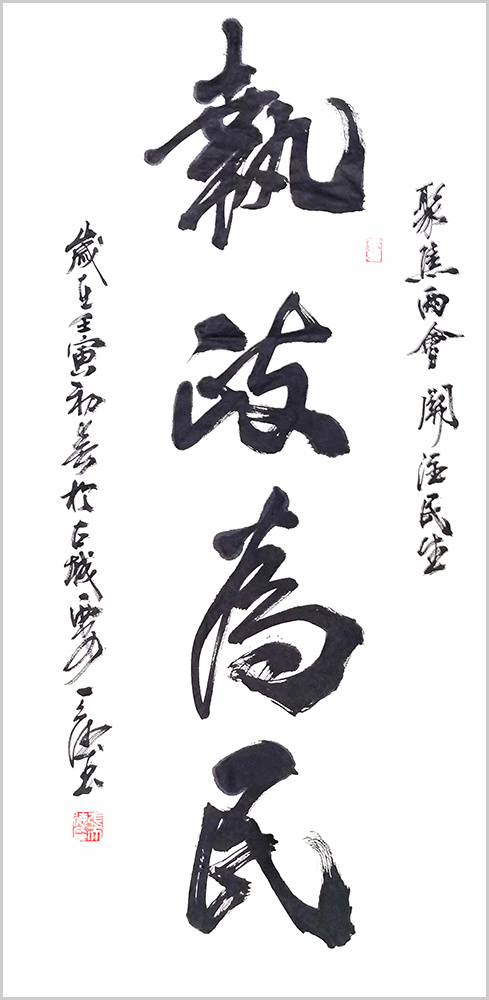 聚焦兩會 關注民生
執政為民
歲在壬寅初春於古城西安